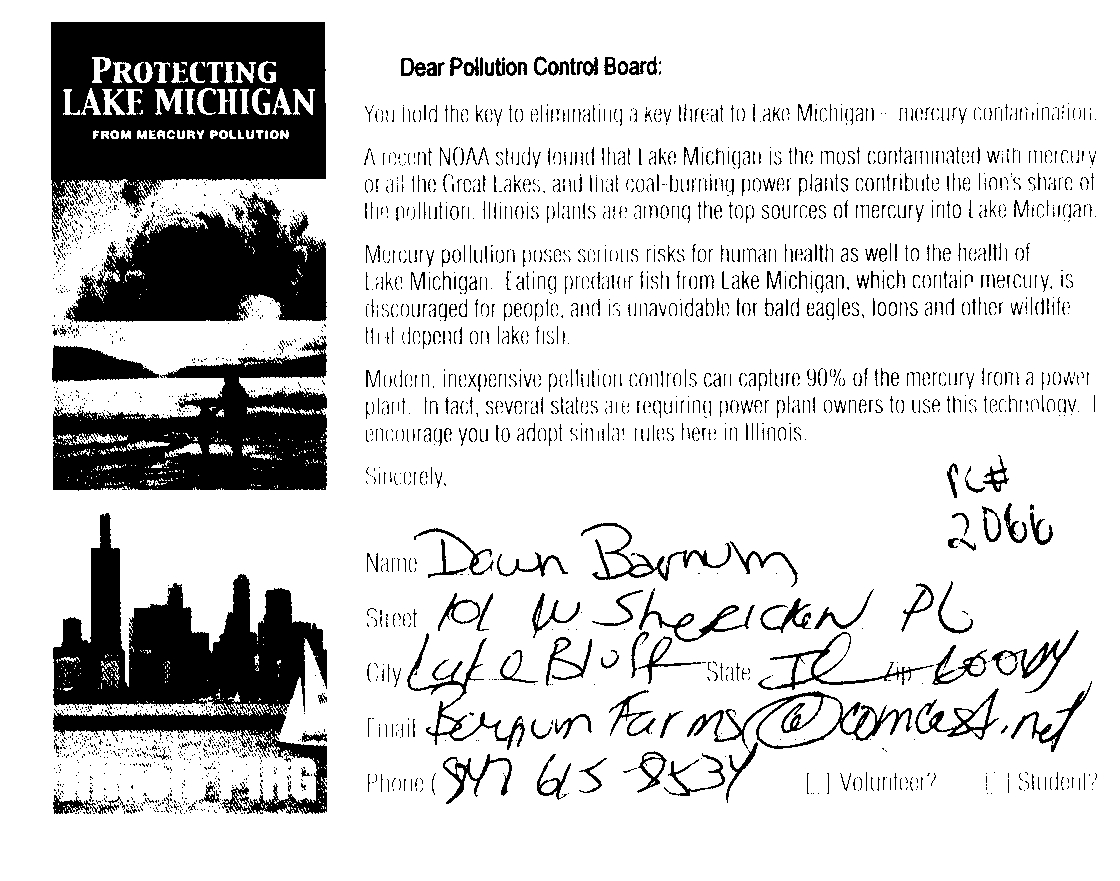 PROTECTING
LAKE MICHIGAN
FROM MERCURY POLLUTION
Dear Pollution Control Board:
You hold the key to eliminating a key threat to Lake Michigan - mercury contamination.
A recent NOAA study found that Lake Michigan is the most contaminated with mercury
of all the Great Lakes, and that coal-burning power plants contribute the lion's share of
the pollution. Illinois plants are among the top sources of mercury into Lake Michigan.
Mercury pollution poses serious risks for human health as well to the health of
Lake Michigan. Eating predator fish from Lake Michigan, which contain mercury, is
discouraged for people, and is unavoidable for bald eagles, loons and other wildlife
that depend on lake fish.
Modern, inexpensive pollution controls can capture 90% of the mercury from a power
plant. In fact, several states are requiring power plant owners to use this technology. I
encourage you to adopt similar rules here in Illinois.
Sincerely,
PC#
2066
Name Dawn Barnum
Street 101 W Sheridan PL
City Lake Bluff State IL Zip 60044
Email Barnum Farms@comcast.net
Phone ( 847 615 8534 [ ] Volunteer? [ ] Student?
Illinois PIRG